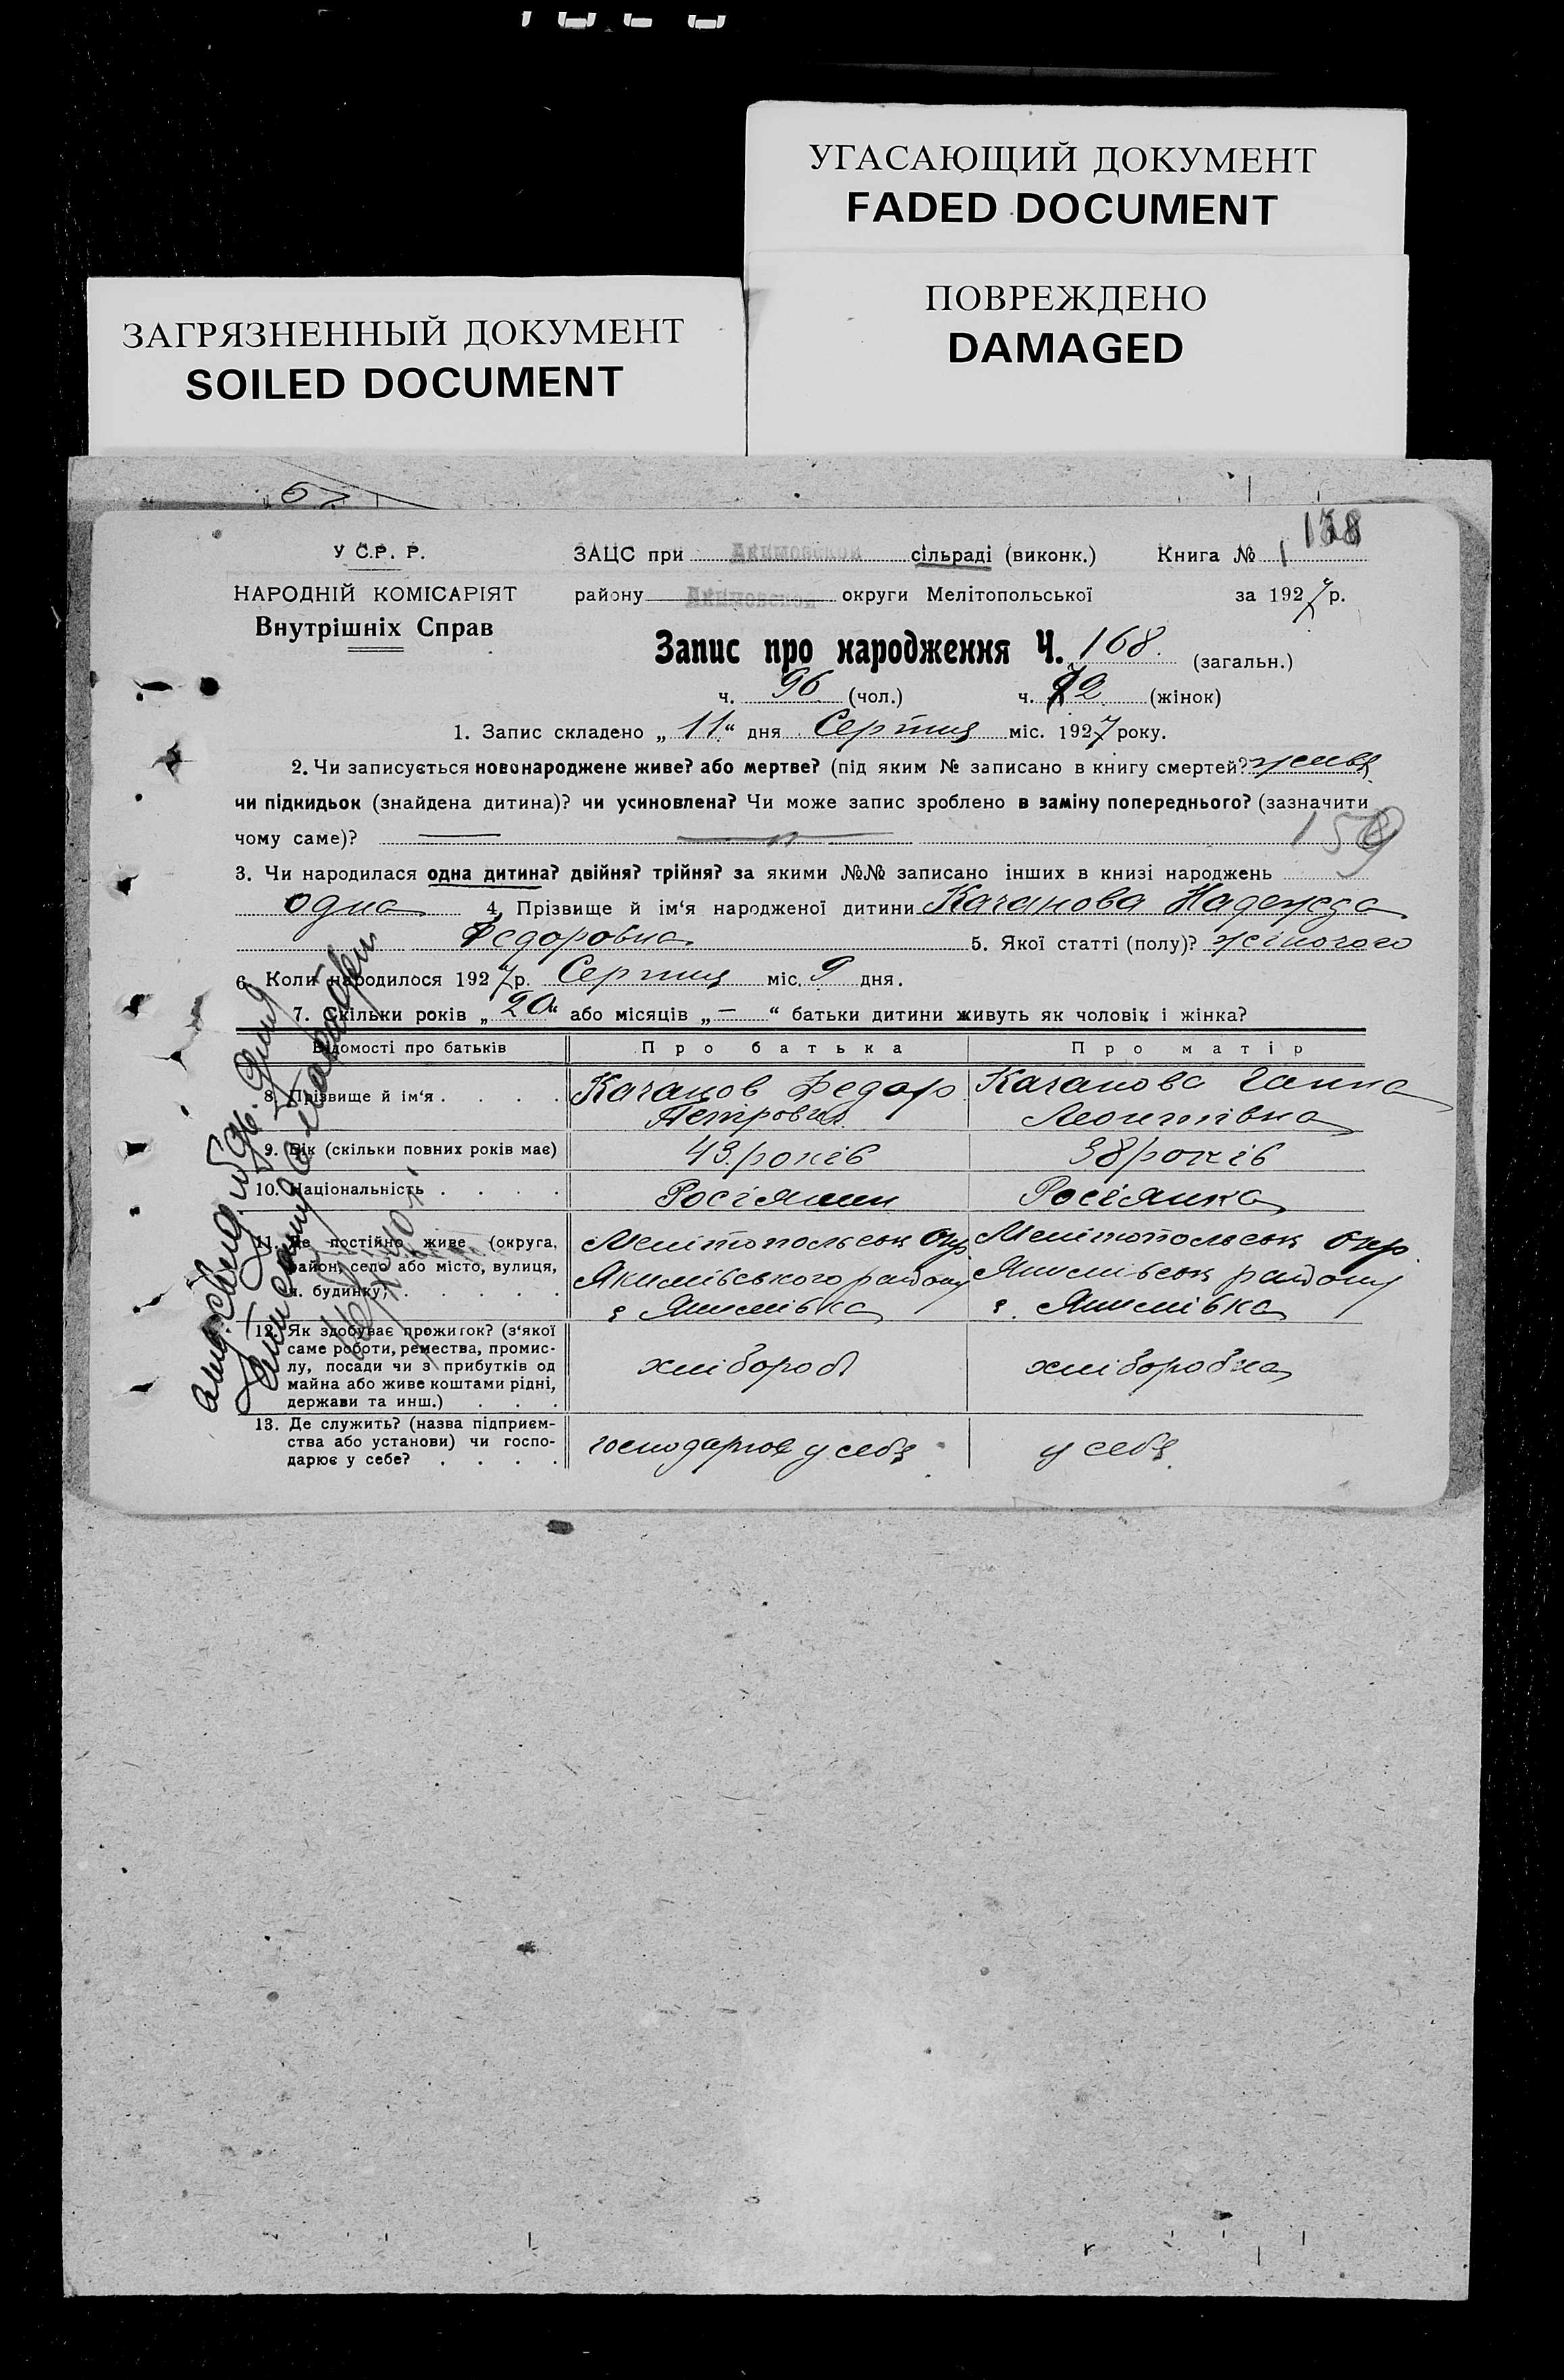 УГАСАЮЩИЙ ДОКУМЕНТ
FADED DOCUMENT
ПОВРЕЖДЕНО
DAMAGED
ЗАГРЯЗНЕННЫЙ ДОКУМЕНТ
SOILED DOCUMENT
У С.Р.Р.
НАРОДНІЙ КОМІСАРІЯТ
Внутрішніх Справ
ЗАЦС при Акимовской сільраді (виконк.) Книга № 1
району Акимовской округи Мелітопольської за 1927 р.
Запис про народження Ч. 168. (загальн.)
ч. 96 (чол.) ч. 72 (жінок)
1. Запис складено „11“ дня Серпня міс. 1927 року.
2. Чи записується новонароджене живе? або мертве? (під яким № записано в книгу смертей? живе
чи підкидьок (знайдена дитина)? чи усиновлена? Чи може запис зроблено в заміну попереднього? (зазначити
чому саме)?
3. Чи народилася одна дитина? двійня? трійня? за якими №№ записано інших в книзі народжень
одна 4. Прізвище й ім‘я народженої дитини Качанова Надежда
Федоровна 5. Якої статті (полу)? жіночого
6. Коли народилося 1927 р. Серпня міс. 9 дня.
7. Скільки років „20“ або місяців „—“ батьки дитини живуть як чоловік і жінка?
Відомості про батьків Про батька Про матір
8. Прізвище й ім‘я . . . . Качанов Федор Качанова Ганна
Петрович Леонтівна
9. Вік (скільки повних років має) 43 років 38 років
10. Національність . . . . Росіянин Росіянка
11. Де постійно живе (округа, Мелітопольськ окр Мелітопольськ окр.
район, село або місто, вулиця, Якимівського району Якимівськ району
ч. будинку) . . . . . . с Якимівка с. Якимівка
12. Як здобуває прожиток? (з‘якої
саме роботи, ремества, промис-
лу, посади чи з прибутків од хлібороб хліборобка
майна або живе коштами рідні,
держави та инш.) . . .
13. Де служить? (назва підприєм-
ства або установи) чи госпо- господарює у себе у себе
дарює у себе? . . . .